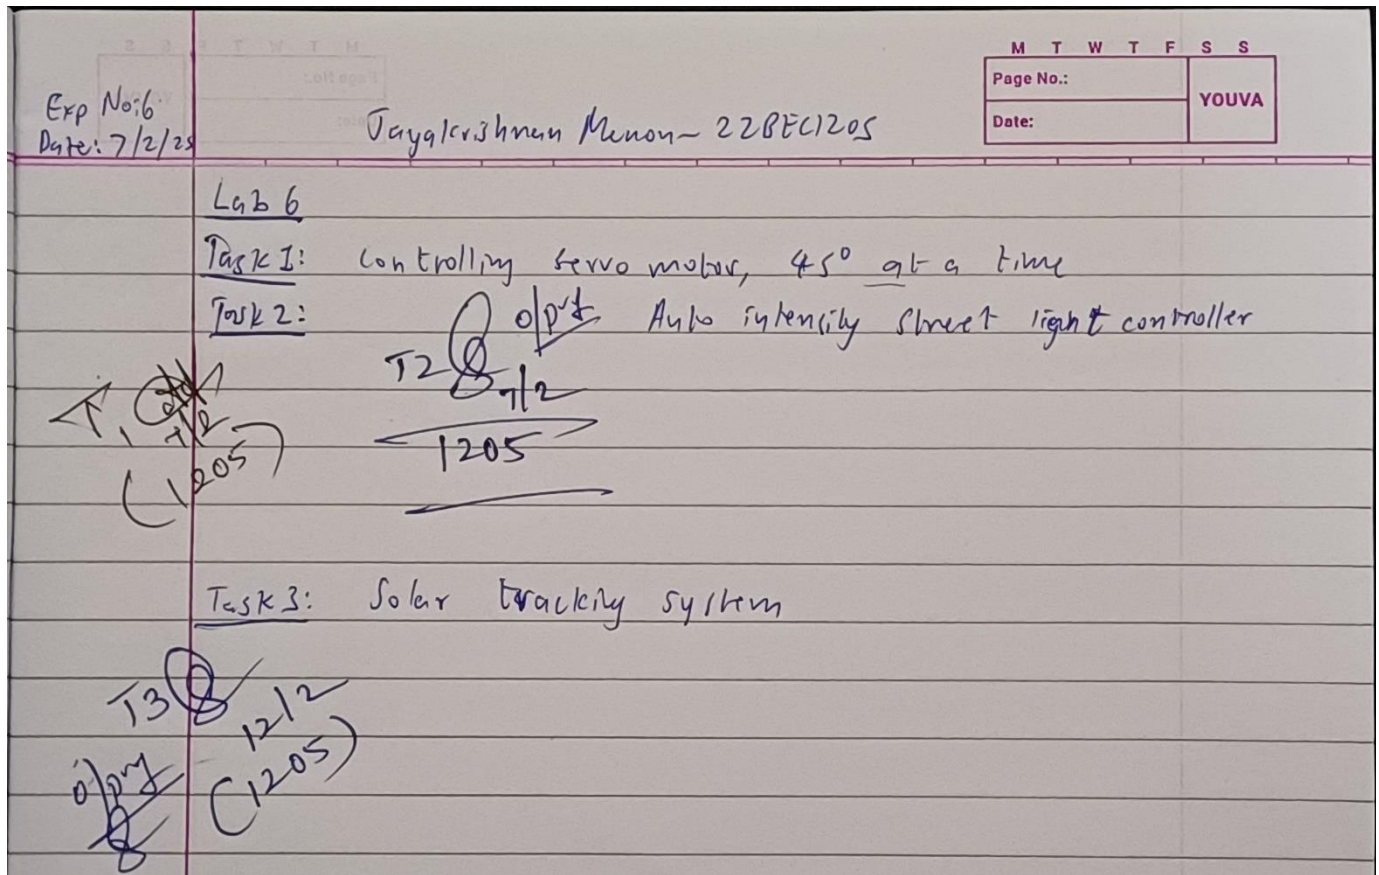 M T W T F S S
Page No.:
YOUVA
Date:
Exp No:6
Date: 7/2/25
Jayakrishnan Menon - 22BEC1205
Lab 6
Task 1: Controlling servo motor, 45° at a time
Task 2: Auto intensity street light controller
o/p
T2
7/2
1205
T1
7/2
(1205)
Task 3: Solar tracking system
T3
12/2
(1205)
o/p